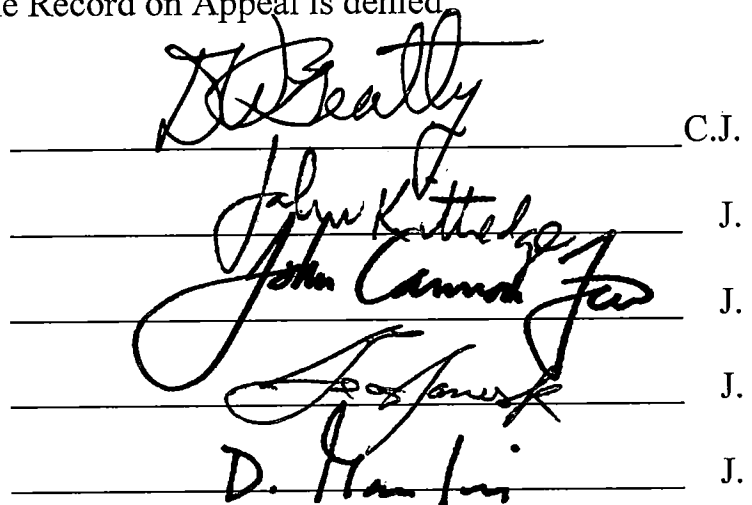 e Record on Appeal is denied
D W Beatty C.J.
John Kittredge J.
John Cannon Few J.
J.
D. J.